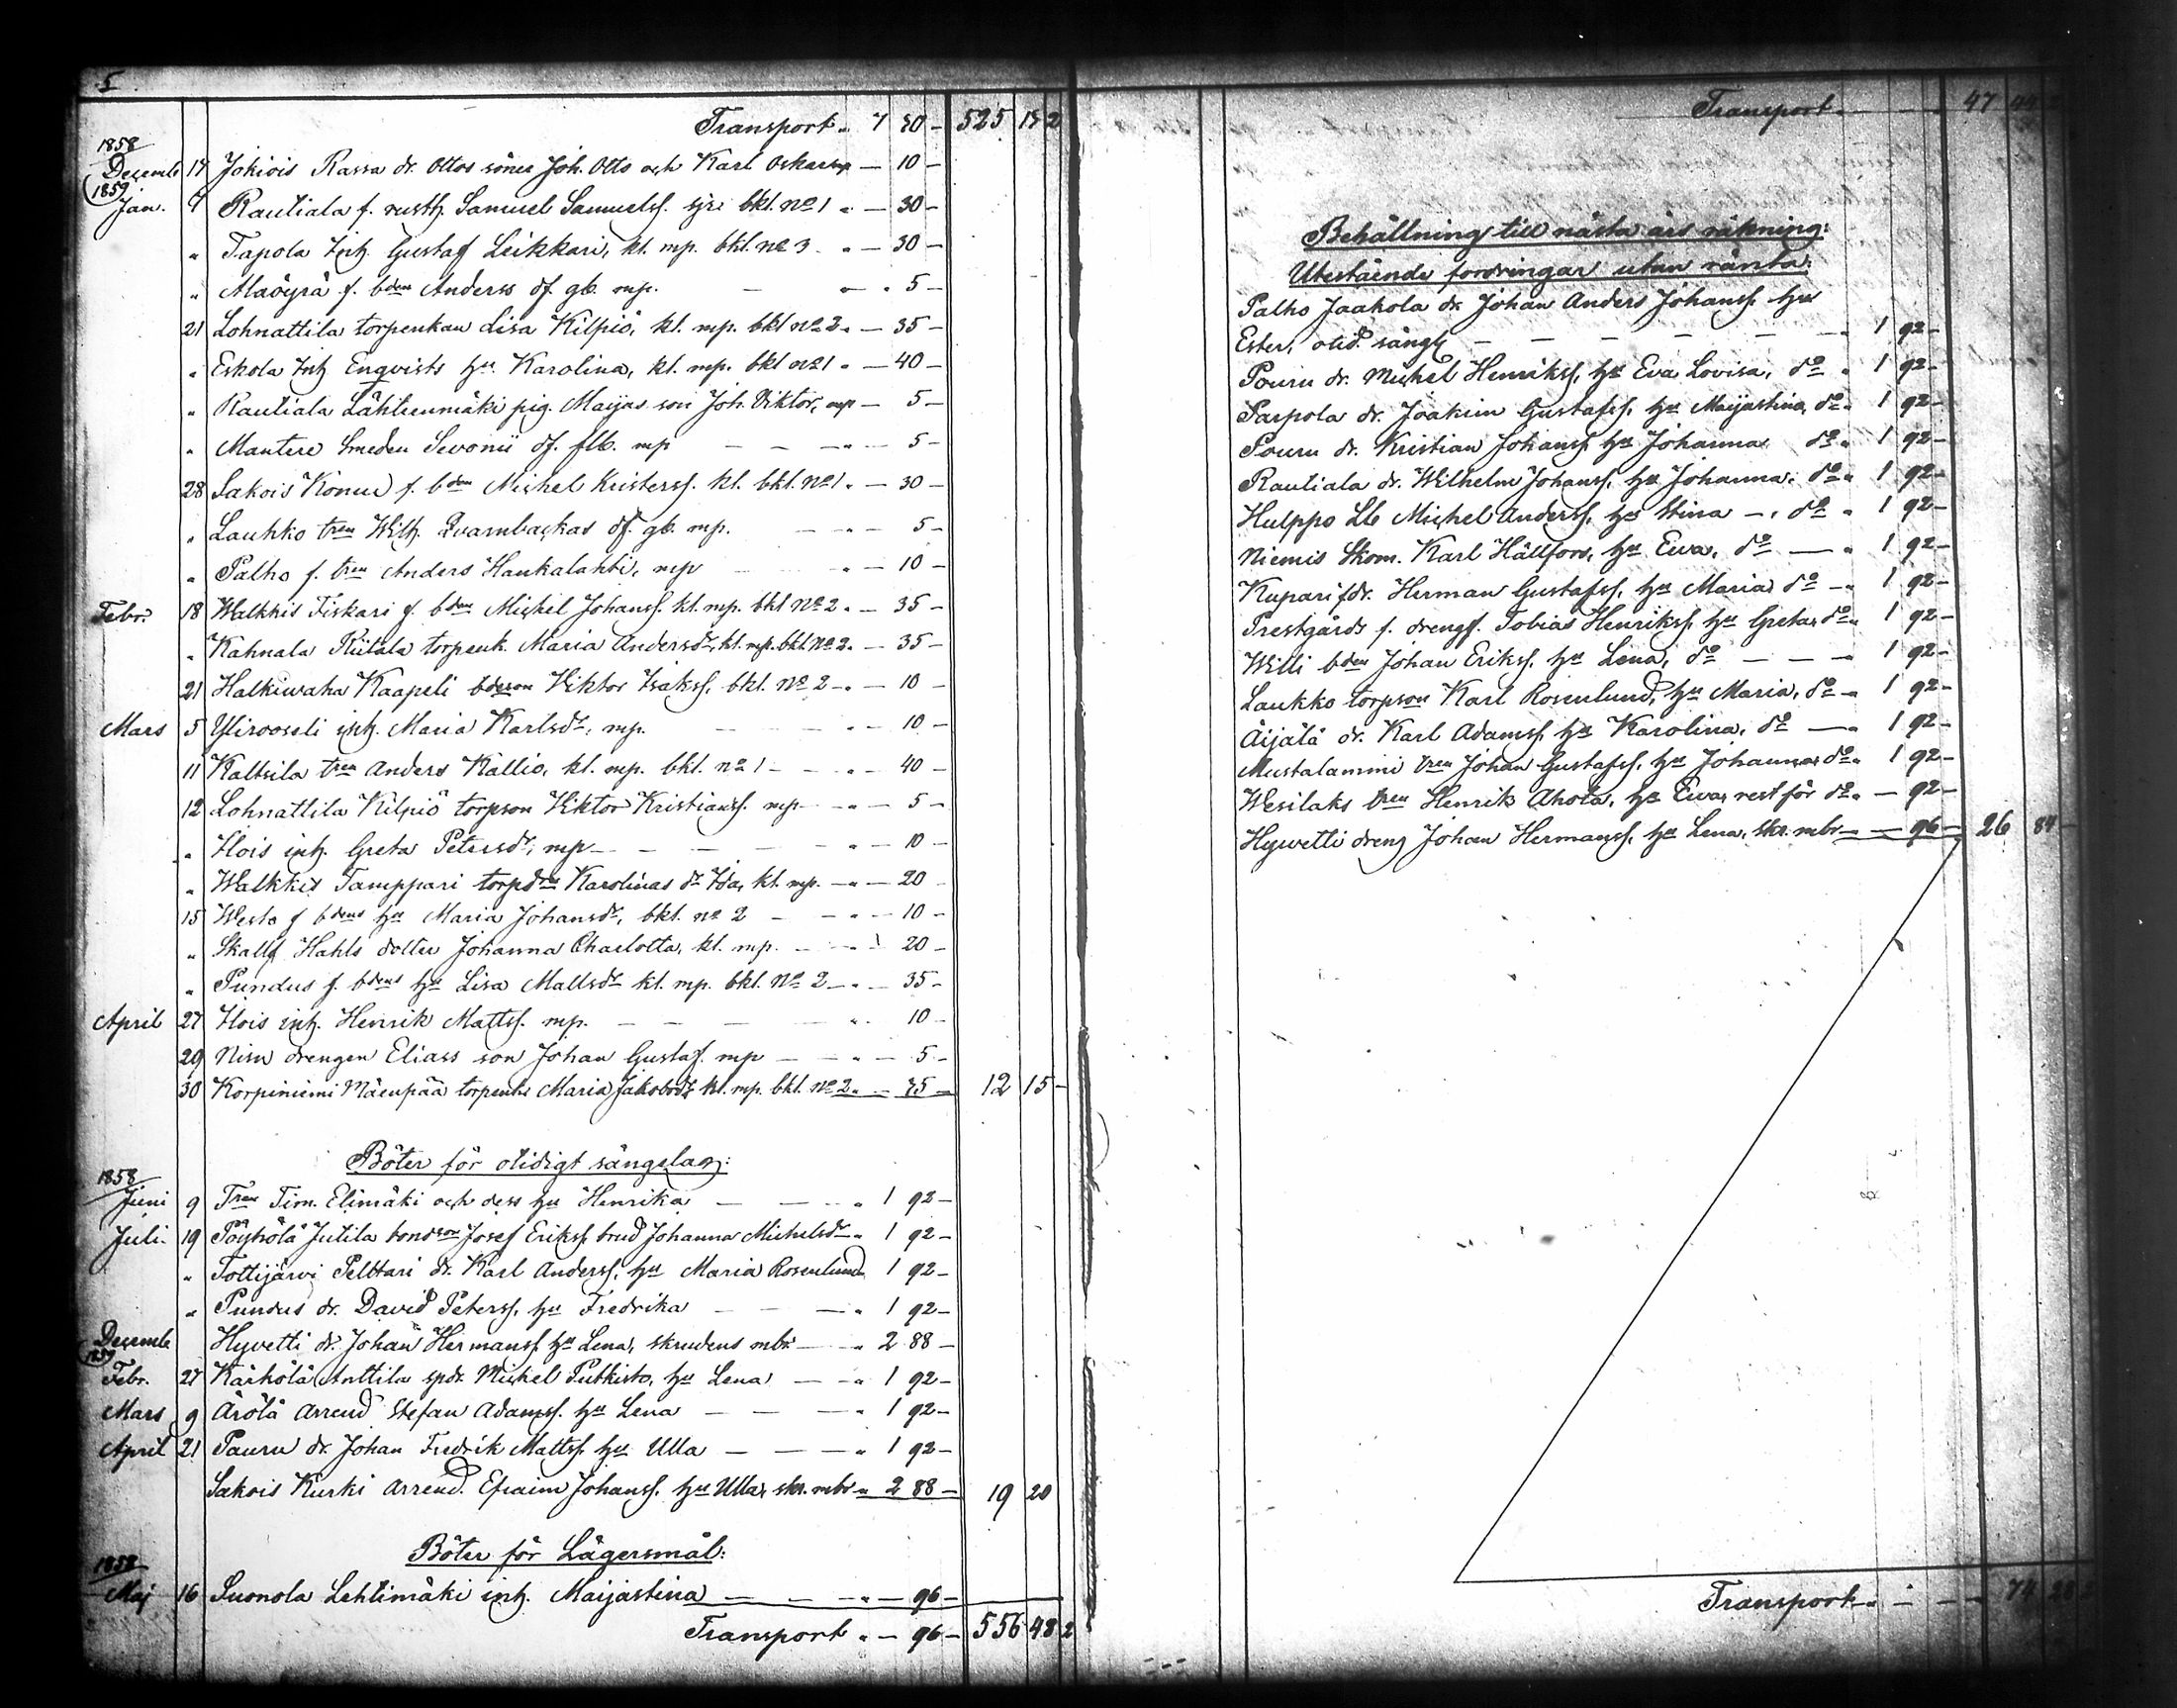 5
Transport „ 7 70 – 525 15 2
1858
Decemb 17 Jokiois Rassa dr. Ottos söner Joh. Otto och Karl Oskar mp — 10 –
1859
Jan. 7 Rautiala f. rusth. Samuel Samuelss. sjr. bkl. No 1 „ — 30 –
„ Tapola Inh. Gustaf Leikkari, kl. mp. bkl. No 3 „ — 30 –
„ Alaöyrä f. bden Anderss df. gb. mp. — „ „ 5 –
21 Lohnattila torpenkan Lisa Kilpiö, kl. mp. bkl No 2 „ — 35 –
„ Eskola Inh. Enqvists hu Karolina, kl. mp. bkl No 1 „ — 40 –
„ Rautiala Lähteenmäki pig. Maijas son Joh. Viktor, mp — 5 –
„ Mantere Smeden Sevonii df. flb. mp — — „ — 5 –
28 Sakois Konnu f. bden Michel Kristerss. kl. bkl. No 1 „ — 30 –
„ Laukko tren Wilh. Qvarnbackas df. gb. mp. — „ — 5 –
„ Palho f. tren Anders Haukalahti, mp „ — 10 –
Febr. 18 Walkkis Fiskari f. bden Michel Johanss. kl. mp. bkl No 2 „ — 35 –
„ Kahnala Riitala torpenk. Maria Andersdr, kl. mp. bkl. No 2 „ — 35 –
21 Halkiwaha Kaapeli bdeson Viktor Isakss. bkl. No 2 — „ — 10 –
Mars 5 Yliroosseli inh. Maria Karlsdr, mp. „ — 10 –
11 Kaltsila tren Anders Kallio, kl. mp. bkl. No 1 — „ — 40 –
12 Lohnattila Kilpiö torpson Viktor Kristianss. mp — „ — 5 –
„ Hois inh. Greta Petersdr, mp — — — „ — 10 –
„ Walkkis Tamppari torpdrs Karolinas dr Ida, kl. mp. — „ — 20
15 Westo f bdens hu Maria Johansdr, bkl. No 2 — — „ — 10 –
„ Skallf Hahls dotter Johanna Charlotta, kl. mp. — „ 20 –
„ Pundus f. bdens hu Lisa Mattsdr kl. mp. bkl. No 2 — „ — 35 –
April 27 Hois inh. Henrik Mattss. mp. — — — „ 10 –
29 Nisu drengen Eliass son Johan Gustaf. mp — „ — 5 –
30 Korpiniemi Mäenpää torpenk Maria Jakobsdr kl. mp. bkl. No 2 „ — 75 — 12 15 –
Böter för otidigt sängelag:
1858
Juni 9 Tren Tim. Elimäki och dess hu Henrika — — „ 1 92 –
Juli 19 Pöyhölä Jutila bondson Josef Erikss. brud Johanna Michelsdr „ 1 92 –
„ Tottijärvi Pelttari dr. Karl Anderss. hu Maria Rosenlund 1 92 –
„ Pundus dr. David Peterss. hu Fredrika — — „ 1 92 –
Decemb Hyvetti dr. Johan Hermanss hu Lena, skrudens mbr — „ 2 88 –
1859
Febr. 27 Kärkölä Anttila spdr. Michel Putkisto, hu Lena — „ 1 92 –
Mars 9 Ärölä Arrend Stefan Adamss. hu Lena — — „ 1 92 –
April 21 Pauru dr. Johan Fredrik Mattss. hu Ulla — — „ 1 92 –
Sakois Kurki Arrend. Efraim Johanss. hu Ulla, skr. mbr „ 2 88 – 19 20
Böter för Lägersmål:
1858
Maj 16 Suonola Lehtimäki inh. Maijastina — — „ — 96 –
Transport „ — 96 – 556 48 2
Transport 47 44 2
Behållning till nästa års räkning:
Utestående fordringar utan ränta:
Palho Jaakola dr Johan Anders Johanss. hu
Ester, otid. sängl — — — — — „ 1 92 –
Pouru dr. Michel Henrikss, hu Eva Lovisa, do „ 1 92 –
Parpola dr. Joakim Gustafss. hu Maijastina, do „ 1 92 –
Pouru dr. Kristian Johanss. hu Johanna do „ 1 92 –
Rautiala dr. Wilhelm Johanss, hu Johanna, do „ 1 92 –
Hulppo Lb Michel Anderss, hu Stina —, do „ 1 92 –
Niemis Skom. Karl Hällfors, hu Ewa, do — „ 1 92 –
Kupari fdr. Herman Gustafss, hu Maria, do — „ 1 92 –
Prestgårds f. drengf. Tobias Henrikss. hu Greta, do „ 1 92 –
Willi bden Johan Erikss. hu Lena, do — — „ 1 92 –
Laukko torpson Karl Rosenlund, hu Maria, do — „ 1 92 –
Äijälä dr. Karl Adamss, hu Karolina, do — „ 1 92 –
Mustalammi tren Johan Gustafss, hu Johanna, do „ 1 92 –
Wesilaks tren Henrik Ahola, hu Ewa, rest för do „ — 92 –
Hyvetti dreng Johan Hermanss, hu Lena, skr. mbr — — 96 – 26 84 –
Transport „ — — 74 28